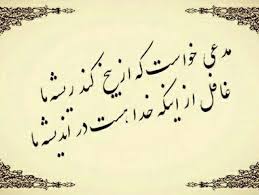 مدعی خواست که از بیخ کند ریشه ما
غافل از اینکه خدا هست در اندیشه ما